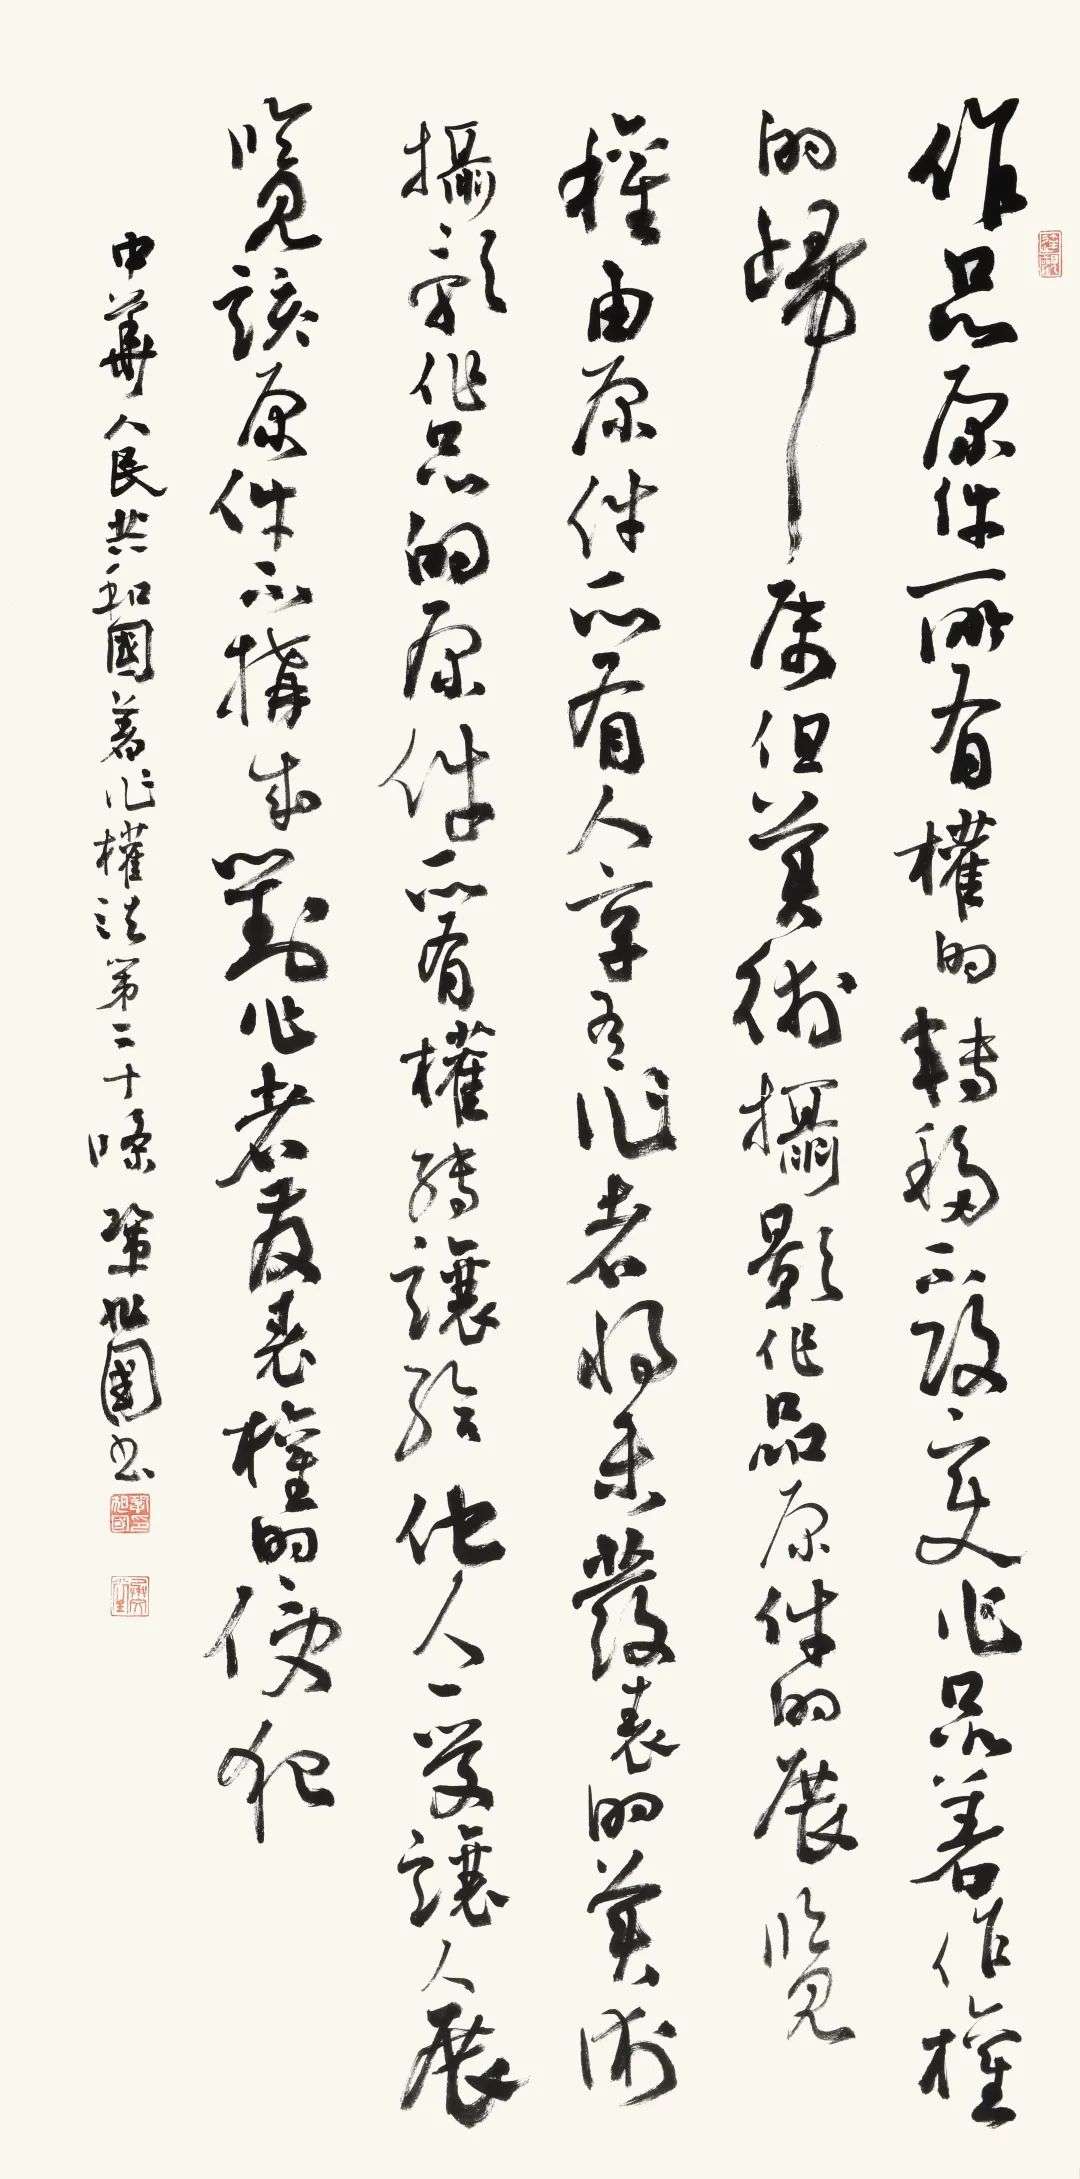 作品原件所有權的轉移不改變作品著作權
的歸屬但美術攝影作品原件的展覽
權由原件所有人享有作者將未發表的美術
攝影作品的原件所有權轉讓給他人受讓人展
覽該原件不構成對作者發表權的侵犯
中華人民共和國著作權法第二十條 旭國書